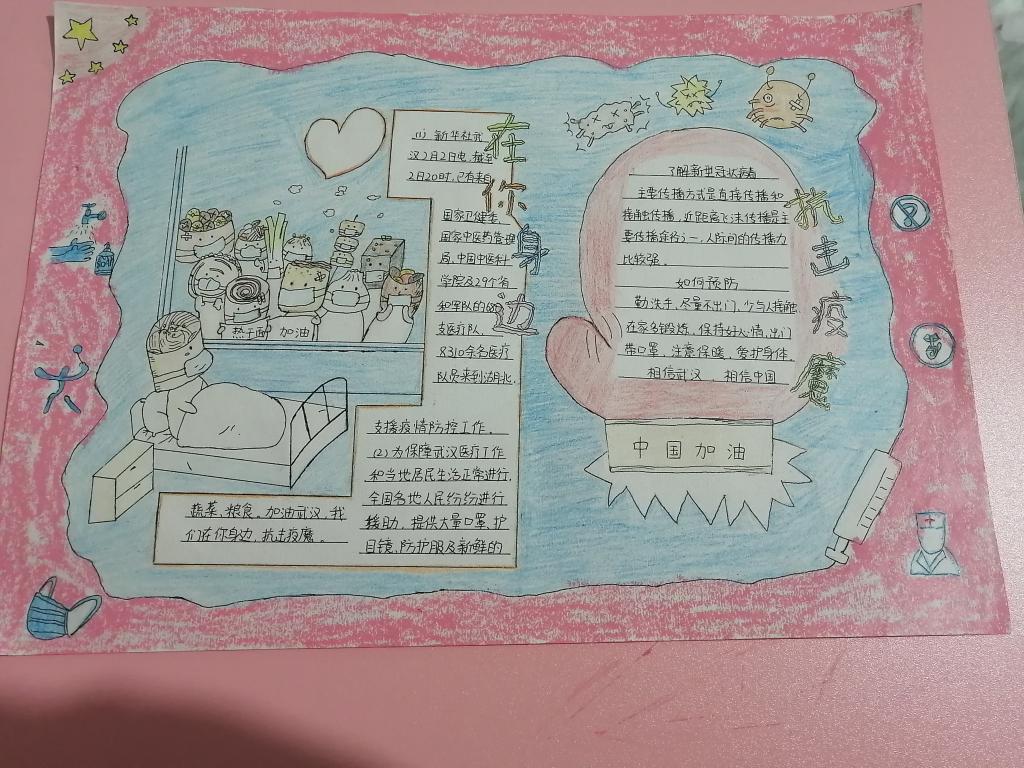 在你身边
(1) 新华社武
汉2月2日电,截至
2月20时,已有来自
国家卫健委、
国家中医药管理
局、中国中医科
学院及29个省
和军队的68
支医疗队、
8310余名医疗
队员来到湖北,
支援疫情防控工作。
(2)为保障武汉医疗工作
和当地居民生活正常进行,
全国各地人民纷纷进行
援助,提供大量口罩,护
目镜,防护服及新鲜的
蔬菜、粮食。加油武汉,我
们在你身边,抗击疫魔。
热干面 加油
抗击疫魔
了解新型冠状病毒
主要传播方式是直接传播和
接触传播,近距离飞沫传播是主
要传播途径之一,人际间的传播力
比较强。
如何预防
勤洗手,尽量不出门,少与人接触,
在家多锻炼,保持好心情,出门
带口罩,注意保暖,爱护身体,
相信武汉,相信中国
中国加油